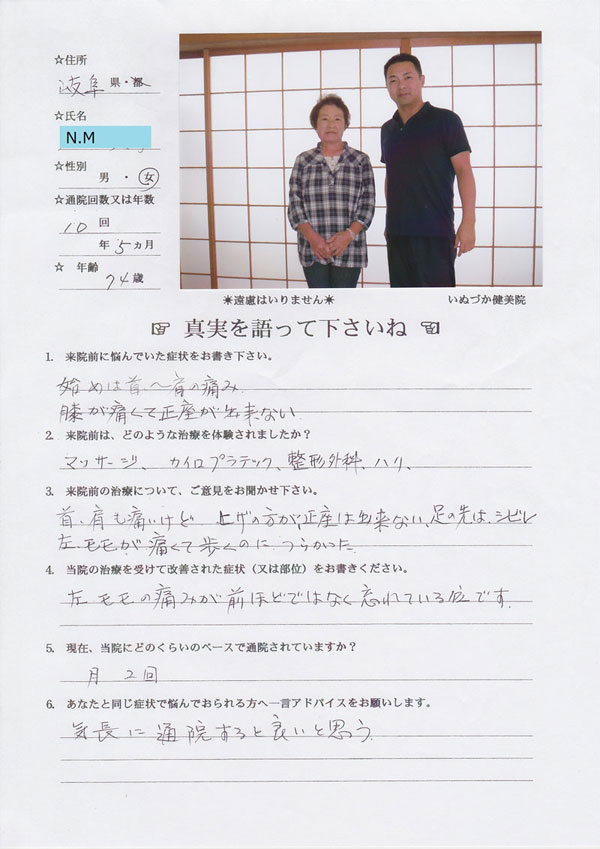 ☆住所
岐阜 県・都
☆氏名
N.M
☆性別
男 ・ 女
☆通院回数又は年数
10 回
年 5 ヵ月
☆ 年齢
74 歳
✳遠慮はいりません✳
いぬづか健美院
☞ 真実を語って下さいね ☜
1. 来院前に悩んでいた症状をお書き下さい。
始めは首、〜肩の痛み
膝が痛くて正座が出来ない
2. 来院前は、どのような治療を体験されましたか？
マッサージ、カイロプラテック、整形外科、ハリ、
3. 来院前の治療について、ご意見をお聞かせ下さい。
首、肩も痛いけど 上げの方が、正座は出来ない、足の先は、シビレ
左、モモが痛くて歩くのに つらかった
4. 当院の治療を受けて改善された症状（又は部位）をお書きください。
左、モモの痛みが前ほどではなく忘れている位です。
5. 現在、当院にどのくらいのペースで通院されていますか？
月 2回
6. あなたと同じ症状で悩んでおられる方へ一言アドバイスをお願いします。
気長に通院すると良いと思う